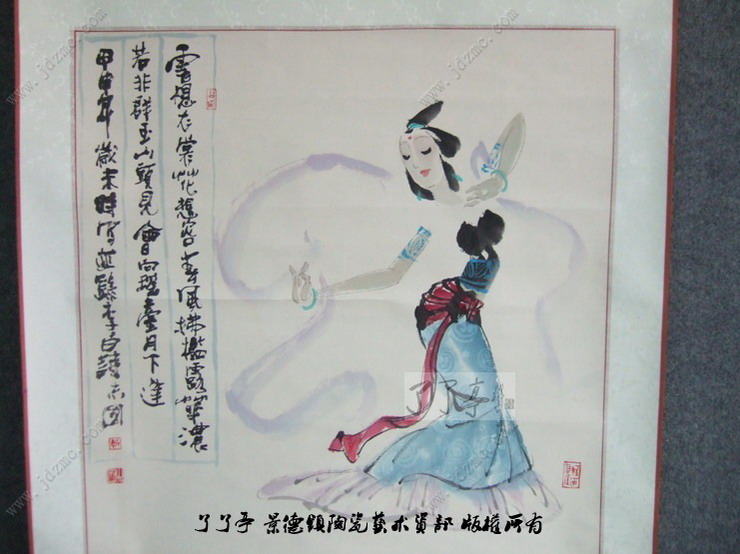 雲想衣裳花想容春風拂檻露華濃
若非群玉山頭見會向瑤臺月下逢
甲申年歲末時寫並錄李白詩
了了亭
了了亭 景德鎮陶瓷藝术資部 版權所有
www.jdzmc.com
www.jdzmc.com
www.jdzmc.com
www.jdzmc.com